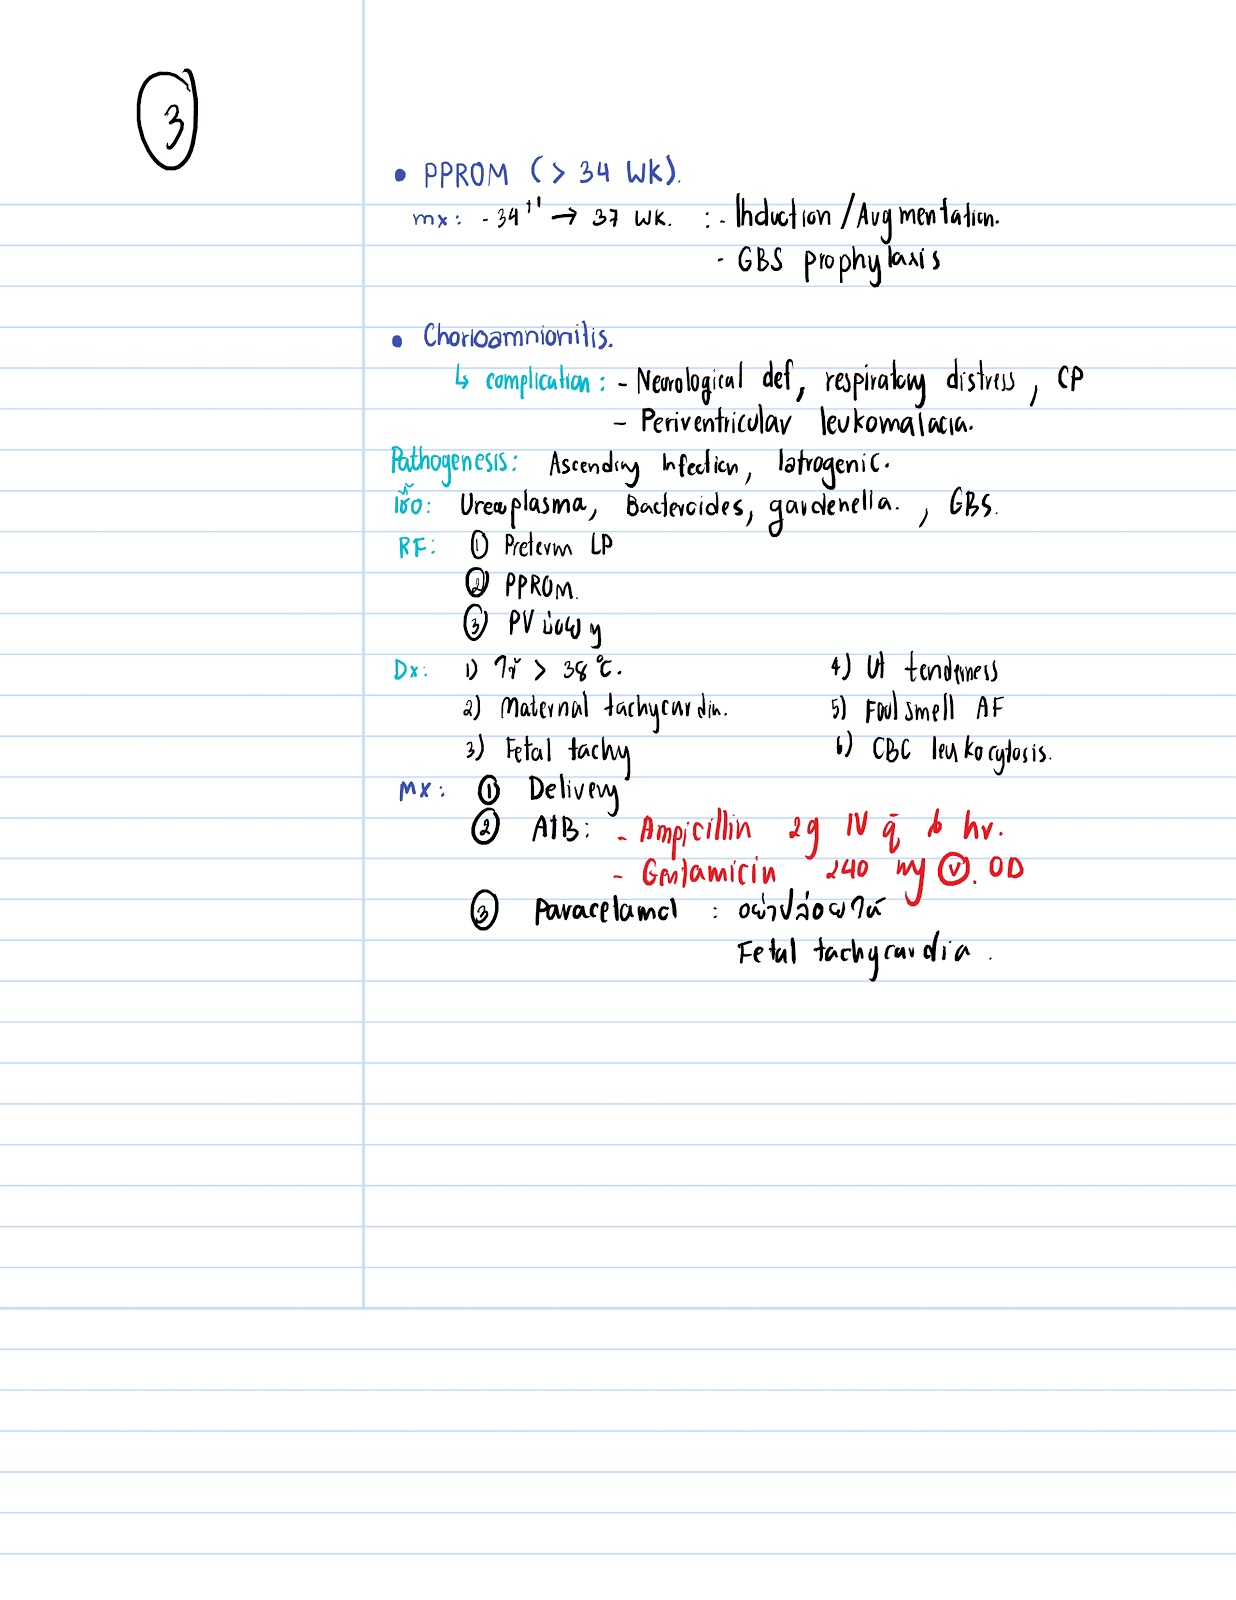 3
• PPROM (> 34 WK).
mx: - 34⁺¹ → 37 WK. : - Induction / Augmentation.
- GBS prophylaxis
• Chorioamnionitis.
↳ complication : - Neurological def, respiratory distress, CP
- Periventricular leukomalacia.
Pathogenesis: Ascending Infection, Iatrogenic.
เชื้อ: Ureaplasma, Bacteroides, gardenella. , GBS.
RF: ① Preterm LP
② PPROM.
③ PV บ่อย ๆ
Dx: 1) ไข้ > 38 °c. 4) Ut tenderness
2) Maternal tachycardia. 5) Foul smell AF
3) Fetal tachy 6) CBC leukocytosis.
MX: ① Delivery
② ATB: - Ampicillin 2g IV q̄ 6 hr.
- Gentamicin 240 mg Ⓥ. OD
③ Paracetamol : อย่าปล่อยให้
Fetal tachycardia .